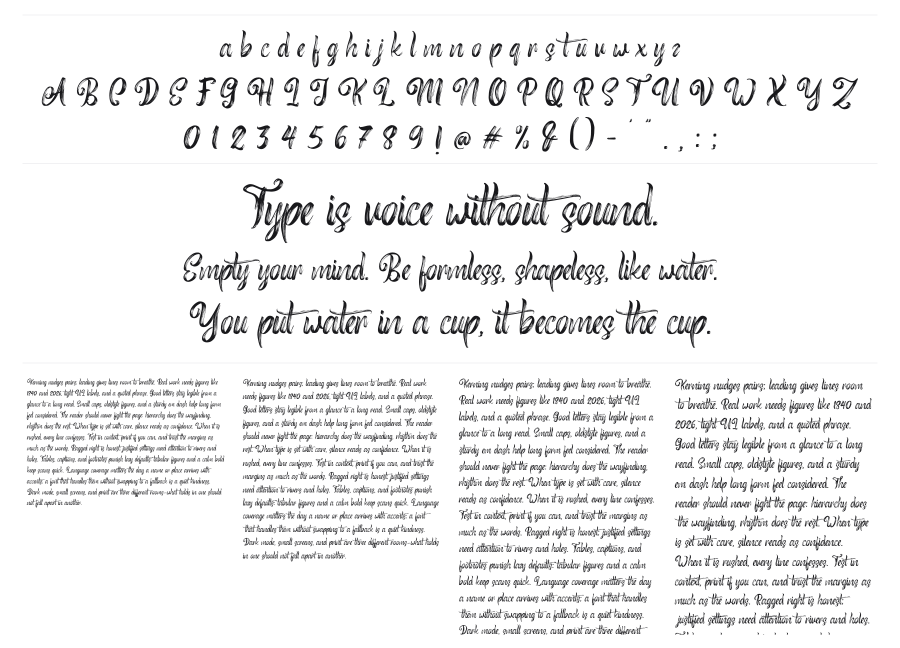 a b c d e f g h i j k l m n o p q r s t u v w x y z
A B C D E F G H I J K L M N O P Q R S T U V W X Y Z
0 1 2 3 4 5 6 7 8 9 ! @ # % & ( ) - ' " . , : ;
Type is voice without sound.
Empty your mind. Be formless, shapeless, like water.
You put water in a cup, it becomes the cup.
Kerning nudges pairs; leading gives lines room to breathe. Real work needs figures like
1940 and 2026, tight UI labels, and a quoted phrase. Good letters stay legible from a
glance to a long read. Small caps, oldstyle figures, and a sturdy em dash help long form
feel considered. The reader should never fight the page: hierarchy does the wayfinding,
rhythm does the rest. When type is set with care, silence reads as confidence. When it is
rushed, every line confesses. Test in context, print if you can, and trust the margins as
much as the words. Ragged right is honest; justified settings need attention to rivers and
holes. Tables, captions, and footnotes punish lazy defaults: tabular figures and a calm bold
keep scans quick. Language coverage matters the day a name or place arrives with
accents; a font that handles them without swapping to a fallback is a quiet kindness.
Dark mode, small screens, and print are three different rooms—what holds in one should
not fall apart in another.
Kerning nudges pairs; leading gives lines room to breathe. Real work
needs figures like 1940 and 2026, tight UI labels, and a quoted phrase.
Good letters stay legible from a glance to a long read. Small caps, oldstyle
figures, and a sturdy em dash help long form feel considered. The reader
should never fight the page: hierarchy does the wayfinding, rhythm does the
rest. When type is set with care, silence reads as confidence. When it is
rushed, every line confesses. Test in context, print if you can, and trust the
margins as much as the words. Ragged right is honest; justified settings
need attention to rivers and holes. Tables, captions, and footnotes punish
lazy defaults: tabular figures and a calm bold keep scans quick. Language
coverage matters the day a name or place arrives with accents; a font
that handles them without swapping to a fallback is a quiet kindness.
Dark mode, small screens, and print are three different rooms—what holds
in one should not fall apart in another.
Kerning nudges pairs; leading gives lines room to breathe.
Real work needs figures like 1940 and 2026, tight UI
labels, and a quoted phrase. Good letters stay legible from a
glance to a long read. Small caps, oldstyle figures, and a
sturdy em dash help long form feel considered. The reader
should never fight the page: hierarchy does the wayfinding,
rhythm does the rest. When type is set with care, silence
reads as confidence. When it is rushed, every line confesses.
Test in context, print if you can, and trust the margins as
much as the words. Ragged right is honest; justified settings
need attention to rivers and holes. Tables, captions, and
footnotes punish lazy defaults: tabular figures and a calm
bold keep scans quick. Language coverage matters the day
a name or place arrives with accents; a font that handles
them without swapping to a fallback is a quiet kindness.
Dark mode, small screens, and print are three different
Kerning nudges pairs; leading gives lines room
to breathe. Real work needs figures like 1940 and
2026, tight UI labels, and a quoted phrase.
Good letters stay legible from a glance to a long
read. Small caps, oldstyle figures, and a sturdy
em dash help long form feel considered. The
reader should never fight the page: hierarchy does
the wayfinding, rhythm does the rest. When type
is set with care, silence reads as confidence.
When it is rushed, every line confesses. Test in
context, print if you can, and trust the margins as
much as the words. Ragged right is honest;
justified settings need attention to rivers and holes.